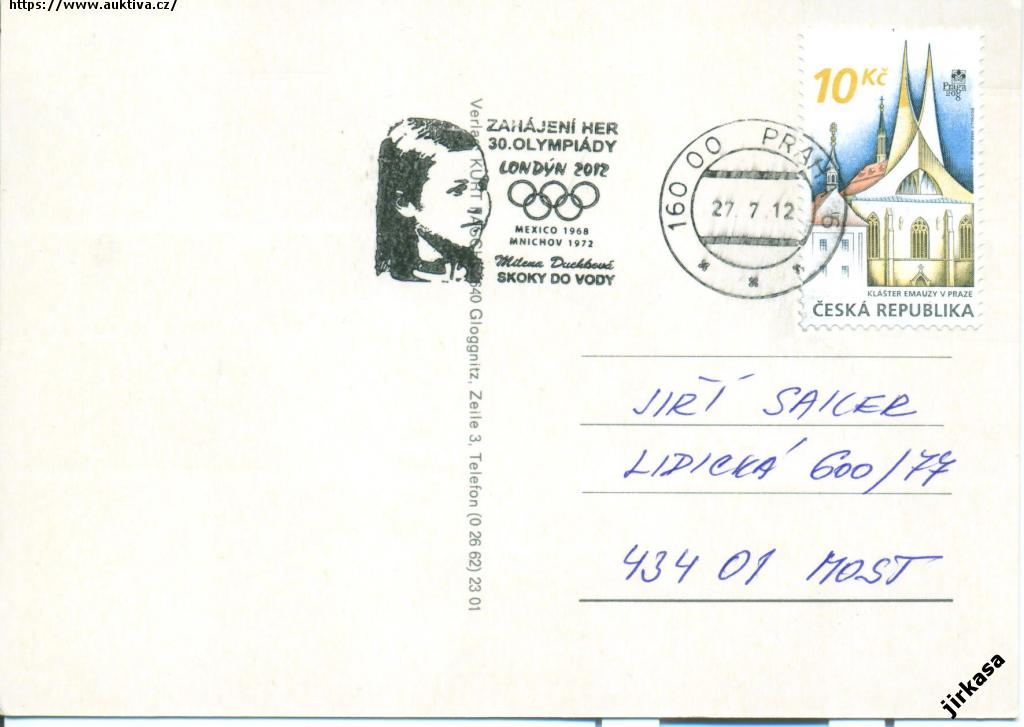 https://www.auktiva.cz/
10 Kč
Praga
2008
ZAHÁJENÍ HER
30.OLYMPIÁDY
LONDÝN 2012
MEXICO 1968
MNICHOV 1972
Milena Duchková
SKOKY DO VODY
160 00 PRAHA 6
27. 7. 12
KLÁŠTER EMAUZY V PRAZE
ČESKÁ REPUBLIKA
Verlag KURT 640 Gloggnitz, Zeile 3, Telefon (0 26 62) 23 01
JIŘÍ SAILER
LIDICKÁ 600/77
434 01 MOST
jirkasa